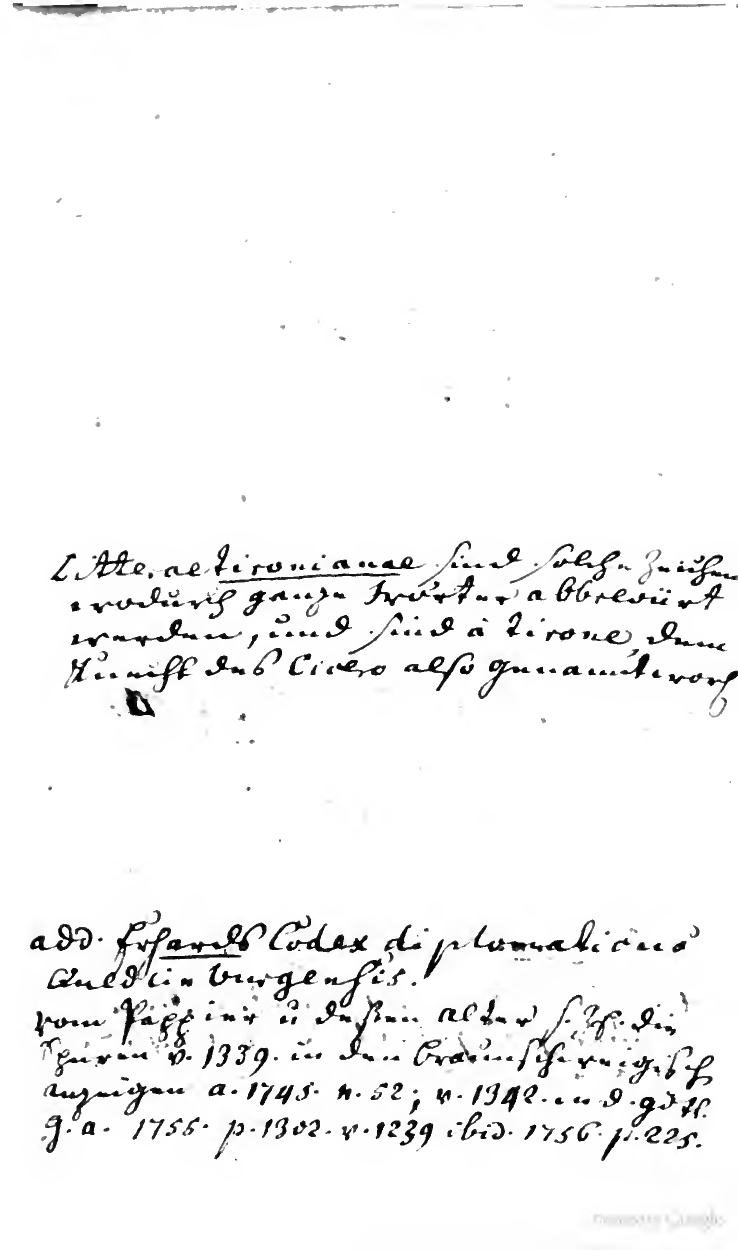 Litterae Tironianae sind solche Zeichen
wodurch ganze Wörter abbreviirt
werden, und sind à Tirone, dem
Knecht des Cicero also genannt word
add. Erhards Codex diplomaticus
Quedlinburgensis.
vom Pappier u deßen alter s. die
Spuren v. 1339. in den braunschweigisch
anzeigen a. 1745. n. 52; v. 1342. in d. gött.
g. a. 1755. p. 1302. v. 1239 ibid. 1756. p. 225.